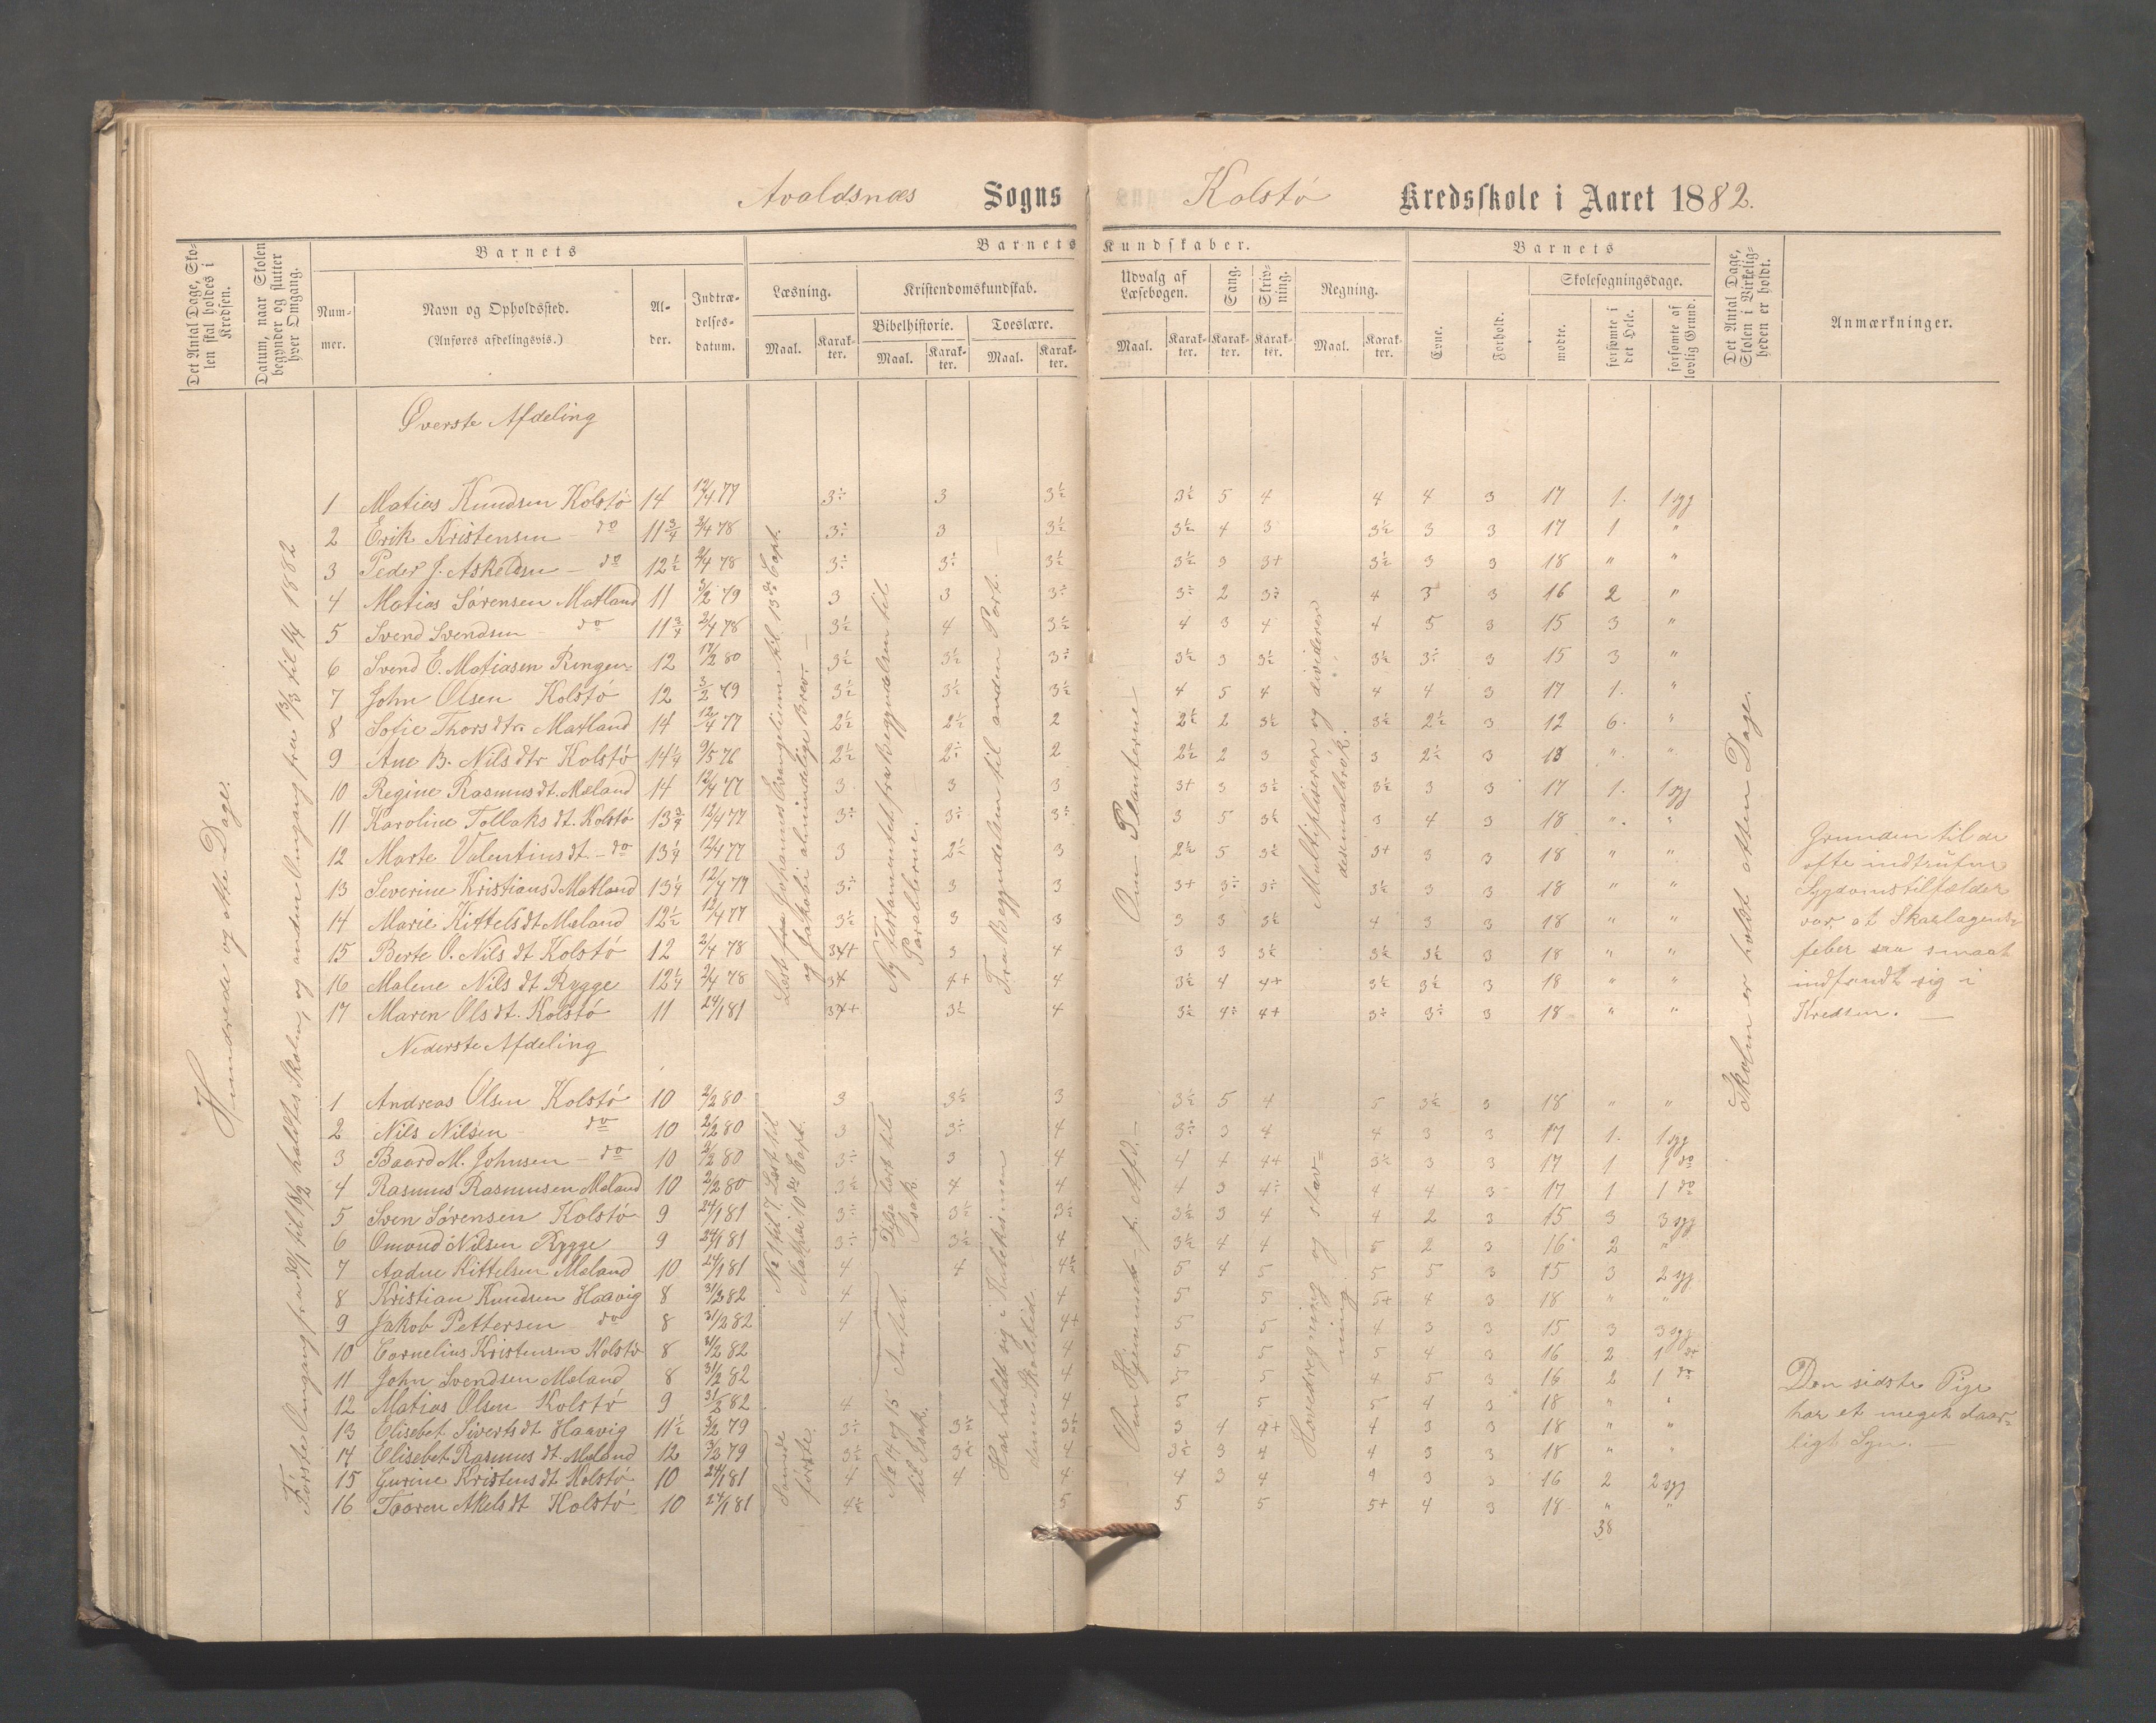 Avaldsnæs Sogns Kolstö Kredsskole i Aaret 1882.
Det Antal Dage, Skolen skal holdes i Kredsen.
Datum, naar Skolen begynder og slutter hver Omgang.
Barnets
Nummer.
Navn og Opholdssted.
(Anføres afdelingsvis.)
Alder.
Indtrædelsesdatum.
Barnets Kundskaber.
Læsning.
Maal. Karakter.
Kristendomskundskab.
Bibelhistorie.
Maal. Karakter.
Troeslære.
Maal. Karakter.
Udvalg af Læsebogen.
Maal. Karakter.
Sang. Karakter.
Skrivning. Karakter.
Regning.
Maal. Karakter.
Barnets
Evne.
Forhold.
Skolesøgningsdage.
mødte.
forsømte i det Hele.
forsømte af lovlig Grund.
Det Antal Dage, Skolen i Virkeligheden er holdt.
Anmærkninger.
Hundrede og otte Dage.
Første Omgang fra 30/1 til 18/2 holdtes Skolen, og anden Omgang fra 13/3 til 1/4 1882
Øverste Afdeling
1 Matias Knudsen Kolstö 14 12/4 77 3÷ 3 3½ 3½ 5 4 4 4 3 17 1. 1 syg
2 Erik Kristensen - do 11¾ 2/4 78 3÷ 3 3½ 3½ 4 3 3½ 3 3 17 1 "
3 Peder J. Askeldsen - do 12½ 2/4 78 3÷ 3÷ 3½ 3½ 3 3+ 3½ 3 3 18 " "
4 Matias Sörensen Matland 11 3/2 79 3 3 3÷ 3÷ 2 3÷ 4 3 3 16 2 "
5 Svend Svendsen - do 11¾ 2/4 78 3½ 4 3½ 4 3 4 4 5 3 15 3 "
6 Svend E. Matiasen Ringen 12 17/2 80 3½ 3½ 3÷ 3½ 3 3½ 3½ 3÷ 3 15 3 "
7 John Olsen Kolstö 12 3/2 79 3½ 3½ 3½ 4 5 4 4 4 3 17 1. "
8 Sofie Thorsdtr. Matland 14 12/4 77 2½ 2½ 2 2½ 2 3½ 3½ 2½ 3 12 6. "
9 Ane B. Nilsdtr Kolstö 14¼ 9/5 76 2½ 2÷ 2 2½ 2 3 3 2÷ 3 18 " "
10 Regine Rasmusdt. Mæland 14 12/4 77 3 3 3 3+ 3 3½ 3½ 3 3 17 1. 1 syg
11 Karoline Tollaksdt. Kolstö 13¾ 12/4 77 3÷ 3÷ 3÷ 3 5 3½ 3 4 3 18 " "
12 Marte Valentinsdt - do 13¼ 12/4 77 3 2½ 3 2½ 5 3½ 3+ 3 3 18 " "
13 Severine Kristiansd Matland 13¼ 12/4 77 3÷ 3 3 3+ 3÷ 3÷ 3½ 3 3 18 " "
14 Marie Kittelsdt Mæland 12½ 12/4 77 3½ 3 3 3 3 3½ 4 3 3 18 " "
15 Berte O. Nilsdt Kolstö 12 2/4 78 3+ 3 4 3 3 3½ 3½ 3½ 3 18 " "
16 Malene Nilsdt Rygge 12¼ 2/4 78 3 4+ 4 3½ 4 4+ 3½ 3½ 3 18 " "
17 Maren Olsdt. Kolstö 11 24/1 81 3+ 3½ 4 3½ 4÷ 4+ 3÷ 3÷ 3 18 " "
Læst fra Johannes Evangelium til 13de Capt. og Jakobi almindelige Brev. —
Ny Testamentet fra begyndelsen til Parablerne.
Fra Begyndelsen til anden Part. —
Om Planterne —
Multipliserer og dividerer desimalbrök.
Skolen er holdt atten Dage.
Grunden til de
ofte indtrufne
Sygdomstilfælder
var, at Skarlagens-
feber saa smaat
indfandt sig i
Kredsen. —
Nederste Afdeling
1 Andreas Olsen Kolstö 10 2/2 80 3 3½ 3 3½ 5 4 5 3½ 3 18 " "
2 Nils Nilsen - do 10 2/2 80 3 3÷ 4 3÷ 3 4 4 3 3 17 1. 1 syg
3 Baard M. Johnsen - do 10 2/2 80 3÷ 3 4 4 4 4+ 3½ 3 3 17 1 1 do
4 Rasmus Rasmusen Mæland 10 2/2 80 3½ 4 4 4 3 4÷ 4 4 3 17 1 1 do
5 Sven Sörensen Kolstö 9 24/1 81 3÷ 3½ 3½ 3½ 3 4 4 2 3 15 3 3 syg
6 Omund Nilsen Rygge 9 24/1 81 3÷ 3½ 4 3½ 4 4 5 2 3 16 2 "
7 Aadne Kittelsen Mæland 10 24/1 81 4 4 4½ 5 4 5 5 5 3 15 3 2 syg
8 Kristian Knudsen Haavig 8 31/2 82 4 4 5 5 5+ 4 3 18 " "
9 Jakob Pettersen - do 8 31/2 82 4 4+ 5 5 4 3 3 15 3 3 syg
10 Cornelius Kristensen Kolstö 8 31/2 82 4 5 5 5 4 3 16 2 1 do
11 John Svendsen Mæland 8 31/2 82 4 5 5 4 5 3 16 2 1 do
12 Matias Olsen Kolstö 9 31/2 82 4 4 5 5 5 4 3 18 " "
13 Elisebet Sivertsdt Haavig 11½ 3/2 79 3÷ 3½ 3÷ 3 4 4+ 4 3 3 18 " "
14 Elisebet Rasmusdt. Mæland 12 3/2 79 3½ 3½ 4 3½ 3 4 4 3 3 18 " "
15 Gurine Kristensdt Kolstö 10 24/1 81 4 4 4 4 3 4 4 3 3 16 2 2 syg
16 Taaren Akelsdt Kolstö 10 24/1 81 4½ 5 5 5 5+ 4 3 18 " "
38
No 1 til 7 Læst til Mathæi 10de Capt.
Samde förste
Disse læst til Isak
Intet.
No 14 og 15 til Isak.
Har holdt sig i Katekismen denne Skoletid.
Om Hjemmet p. Afd. —
Hovedregning og stavning
Den sidste Pige
har et meget daar-
ligt Syn. —